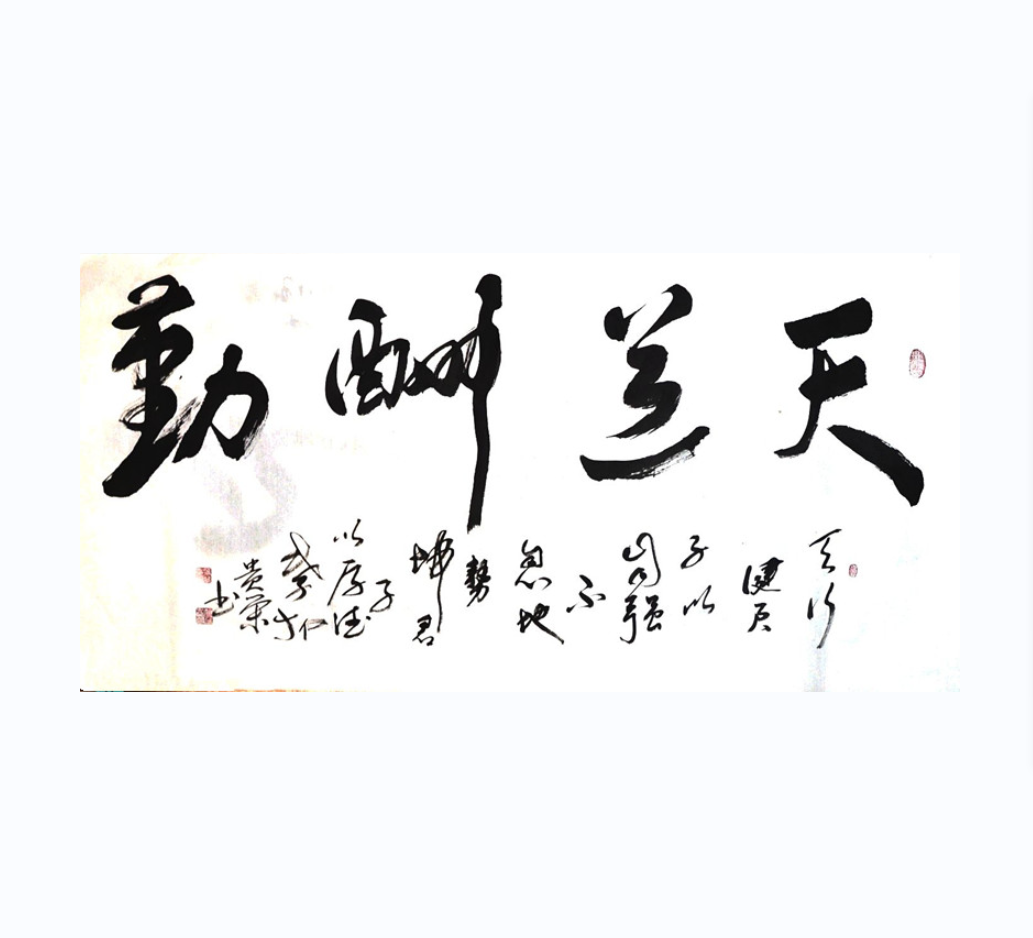 天道酬勤
天行
健君
子以
自强
不
息地
勢
坤君
子
以厚德
贵荣
书